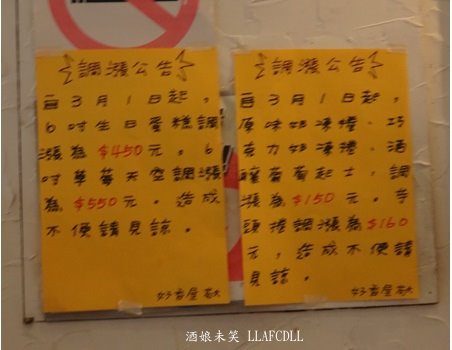 調漲公告
自3月1日起，
6吋生日蛋糕調
漲為$450元，6
吋草莓天空調漲
為$550元。造成
不便請見諒。
好香屋敬
調漲公告
自3月1日起，
原味奶凍捲、巧
克力奶凍捲、酒
釀葡萄起士，調
漲為$150元。芋
頭捲調漲為$160
元，造成不便請
見諒。
好香屋敬
酒娘未笑 LLAFCDLL